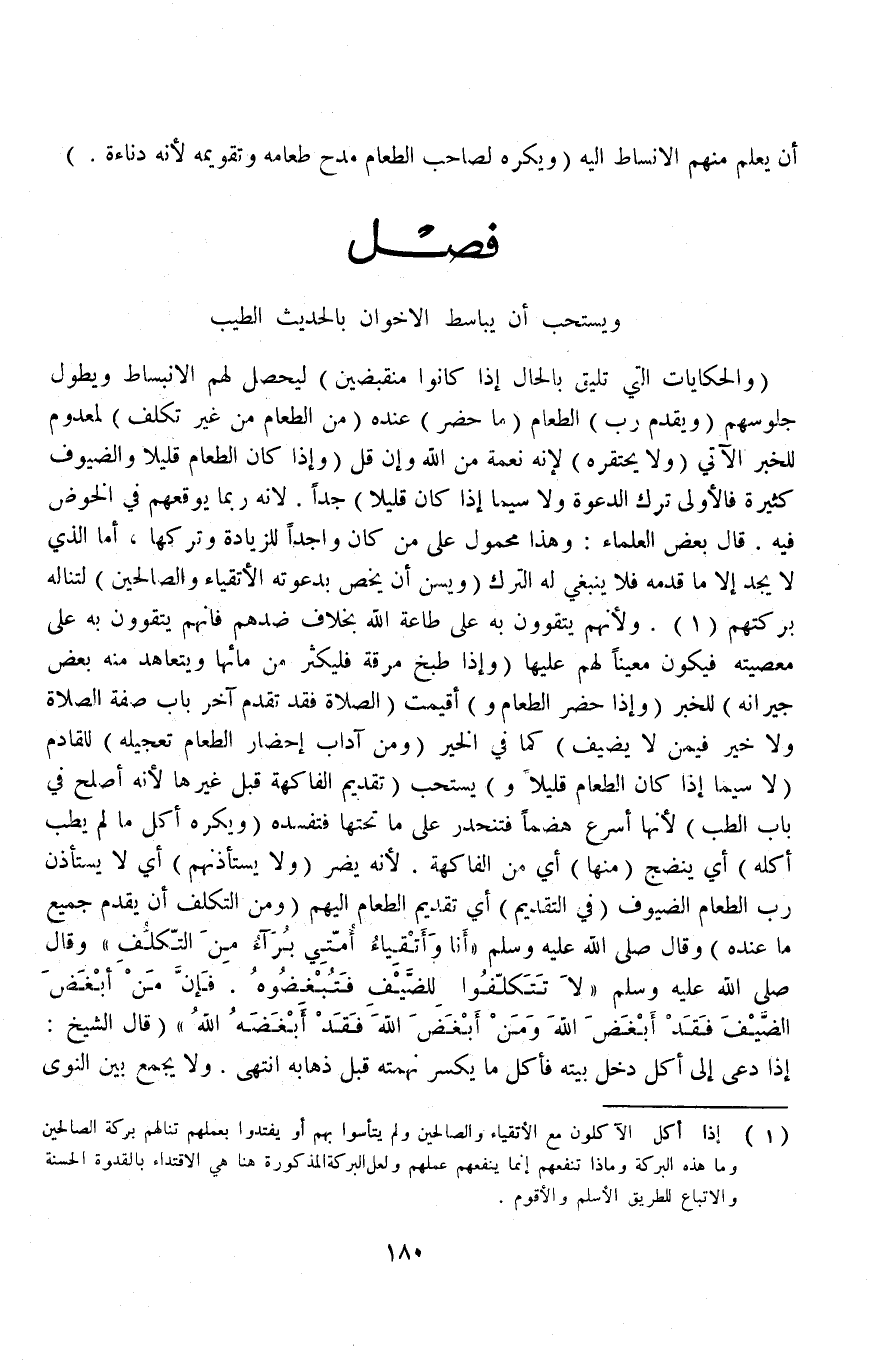 أن يعلم منهم الانساط اليه ( ويكره لصاحب الطعام مدح طعامه وتقويمه لأنه دناءة . )
فصل
ويستحب أن يباسط الاخوان بالحديث الطيب
( والحكايات التي تليق بالحال إذا كانوا منقبضين ) ليحصل لهم الانبساط ويطول
جلوسهم ( ويقدم رب ) الطعام ( ما حضر ) عنده ( من الطعام من غير تكلف ) لمعدوم
للخبر الآتي ( ولا يحتقره ) لإنه نعمة من الله وإن قل ( وإذا كان الطعام قليلا والضيوف
كثيرة فالأولى ترك الدعوة ولا سيما إذا كان قليلا ) جداً . لانه ربما يوقعهم في الخوض
فيه . قال بعض العلماء : وهذا محمول على من كان واجداً للزيادة وتركها ، أما الذي
لا يجد إلا ما قدمه فلا ينبغي له الترك ( ويسن أن يخص بدعوته الأتقياء والصالحين ) لتناله
بركتهم ( ١ ) . ولأنهم يتقوون به على طاعة الله بخلاف ضدهم فانهم يتقوون به على
معصيته فيكون معيناً لهم عليها ( وإذا طبخ مرقة فليكثر من مائها ويتعاهد منه بعض
جيرانه ) للخبر ( وإذا حضر الطعام و ) أقيمت ( الصلاة فقد تقدم آخر باب صفة الصلاة
ولا خير فيمن لا يضيف ) كما في الخير ( ومن آداب إحضار الطعام تعجيله ) للقادم
( لا سيما إذا كان الطعام قليلاً و ) يستحب ( تقديم الفاكهة قبل غيرها لأنه أصلح في
باب الطب ) لأنها أسرع هضماً فتنحدر على ما تحتها فتفسده ( ويكره أكل ما لم يطب
أكله ) أي ينضج ( منها ) أي من الفاكهة . لأنه يضر ( ولا يستأذنهم ) أي لا يستأذن
رب الطعام الضيوف ( في التقديم ) أي تقديم الطعام اليهم ( ومن التكلف أن يقدم جميع
ما عنده ) وقال صلى الله عليه وسلم « أَنا وَأَتْقِياءُ أُمّتِي بُرَآءُ مِنَ التّكلُّفِ » وقال
صلى الله عليه وسلم « لاَ تَتَكلّفُوا لِلضَّيْفِ فَتُبْغِضُوهُ . فَإِنَّ مَنْ أَبْغَضَ
الضَّيْفَ فَقَدْ أَبْغَضَ اللهَ وَمَنْ أَبْغَضَ اللهَ فَقَدْ أَبْغَضَهُ اللهُ » ( قال الشيخ :
إذا دعى إلى أكل دخل بيته فأكل ما يكسر نهمته قبل ذهابه انتهى . ولا يجمع بين النوى
( ١ ) إذا أكل الآكلون مع الأتقياء والصالحين ولم يتأسوا بهم أو يفتدوا بعملهم تنالهم بركة الصالحين
وما هذه البركة وماذا تنفعهم إنما ينفعهم عملهم ولعل البركة المذكورة هنا هي الاقتداء بالقدوة الحسنة
والاتباع للطريق الأسلم والأقوم .
١٨٠